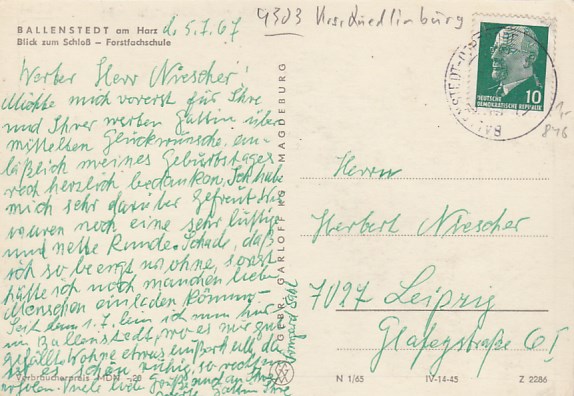 BALLENSTEDT am Harz
Blick zum Schloß – Forstfachschule
d. 5.7.67
4303 Krs. Quedlinburg
Werter Herr Niescher!
Möchte mich vorerst für Ihre
und Ihrer werten Gattin über
mittelten Glückwünsche, an-
läßlich meines Geburtstages
recht herzlich bedanken. Ich habe
mich sehr darüber gefreut. Wir
waren noch eine sehr lustige
und nette Runde. Schade, daß
ich so beengt wohne, sonst
hätte ich noch manchen lieben
Menschen einladen können.
Seit dem 1.7. bin ich nun hier
in Ballenstedt, wo es mir gut
gefällt. Wohne etwas außerhalb, da
ist es schön ruhig, so recht zum
erholen. Viele liebe Grüße und an Ihre
Gattin Ihre
Irmgard
Verbraucherpreis MDN -,20
GEBR. GARLOFF KG MAGDEBURG
DEUTSCHE
DEMOKRATISCHE REPUBLIK
10
BALLENSTEDT
846
Herrn
Herbert Niescher
7027 Leipzig
Glafeystraße 6 I
N 1/65
IV-14-45
Z 2286